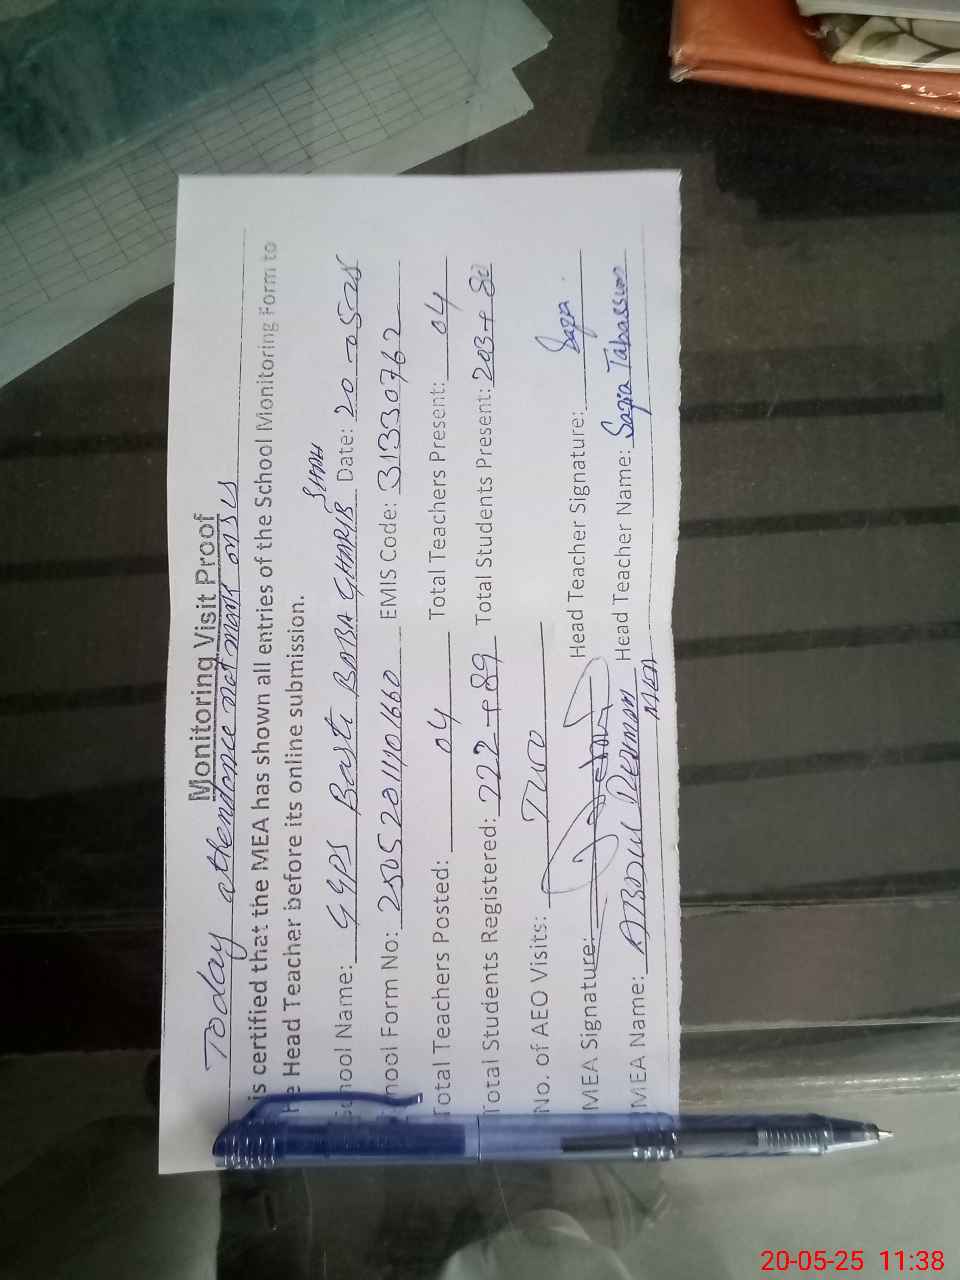 Monitoring Visit Proof
Today attendance not mark on SIS
is certified that the MEA has shown all entries of the School Monitoring Form to
e Head Teacher before its online submission.
chool Name: GGPS Basti BABA GHARIB SHAH Date: 20-05-25
hool Form No: 25052011401660 EMIS Code: 31330762
Total Teachers Posted: 04 Total Teachers Present: 04
Total Students Registered: 222+89 Total Students Present: 203+80
No. of AEO Visits: Two
MEA Signature: Head Teacher Signature: Sazia
MEA Name: ABDUL REHMAN MEA Head Teacher Name: Sazia Tabassum
20-05-25 11:38